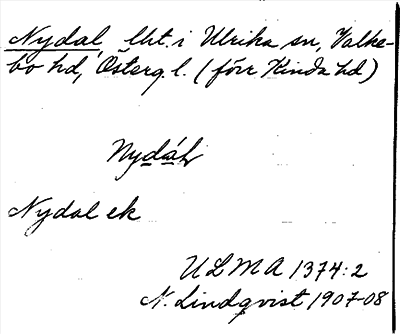 Nydal, lht. i Ulrika sn, Valke-
bo hd, Österg. l. (förr Kinda hd)
Nydal ek
ULMA 1374:2
N. Lindqvist 1907-08